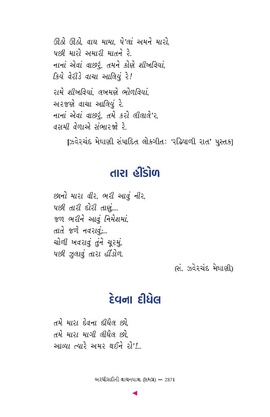 ઊઠો ઊઠો, વાઘ મામા, પે'લાં અમને મારો,
પછી મારો અમારી માતને રે.
નાનાં એવાં વાછરું, તમને કોણે શીખવિયાં,
કિયે વેરીડે વાચા આલિયું રે!
રામે શીખવિયાં, લખમણે ભોળવિયાં,
અરજણે વાચા આલિયું રે.
નાનાં એવાં વાછરું, તમે કરો લીલાલે'ર,
વસમી વેળાએ સંભારજો રે.
[ઝવેરચંદ મેઘાણી સંપાદિત લોકગીત: 'રઢિયાળી રાત' પુસ્તક]
તારા હીંડોળ
છાનો મારા વીર, ભરી આવું નીર,
પછી તારી દોરી તાણું;...
જળ ભરીને આવું નિમેશમાં,
તાતે જળે નવરાવું;...
ચોળી ખવરાવું તુંને ચૂરમું,
પછી ઝુલાવું તારા હીંડોળ.
(સં. ઝવેરચંદ મેઘાણી)
દેવના દીધેલ
તમે મારા દેવના દીધેલ છો,
તમે મારા માગી લીધેલ છો,
આવ્યા ત્યારે અમર થઈને રો'!..
અરધીસદીની વાચનયાત્રા (ઇબુક) — 2371